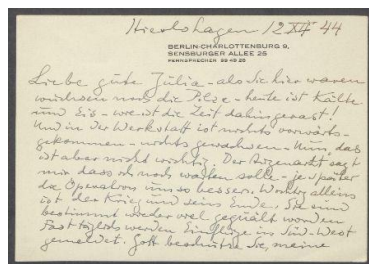 Hierlshagen 12 XII 44
BERLIN-CHARLOTTENBURG 9,
SENSBURGER ALLEE 25
FERNSPRECHER 99 45 25
Liebe gute Julia – als Sie hier waren
wuchsen noch die Pilze – heute ist Kälte
und Eis – wo ist die Zeit dahingerast!
Und in der Werkstatt ist nichts vorwärts-
gekommen – nichts gewachsen – Nun, das
ist aber nicht wichtig. Der Augenarzt sagt
mir, dass ich noch warten solle – je später
die Operation umso besser. Wichtig allein
ist der Krieg und sein Ende. Sie sind
bestimmt wieder viel gequält worden
Fast täglich werden Einflüge in Süd-West
gemeldet. Gott beschütze Sie, meine